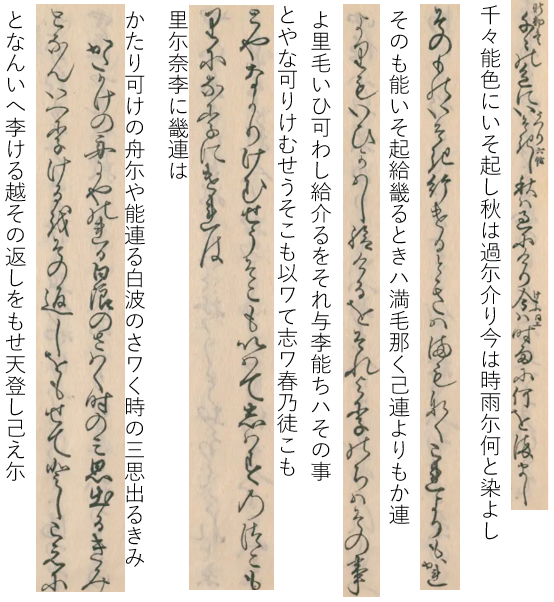 千々能色にいそ起し秋は過尓介り今は時雨尓何と染よし
そのも能いそ起給畿るときハ満毛那く己連よりもか連
よ里毛いひ可わし給介るをそれ与李能ちハその事
とやな可りけむせうそこも以ワて志ワ春乃徒こも
里尓奈李に畿連は
かたり可けの舟尓や能連る白波のさワく時の三思出るきみ
となんいへ李ける越その返しをもせ天登し己え尓